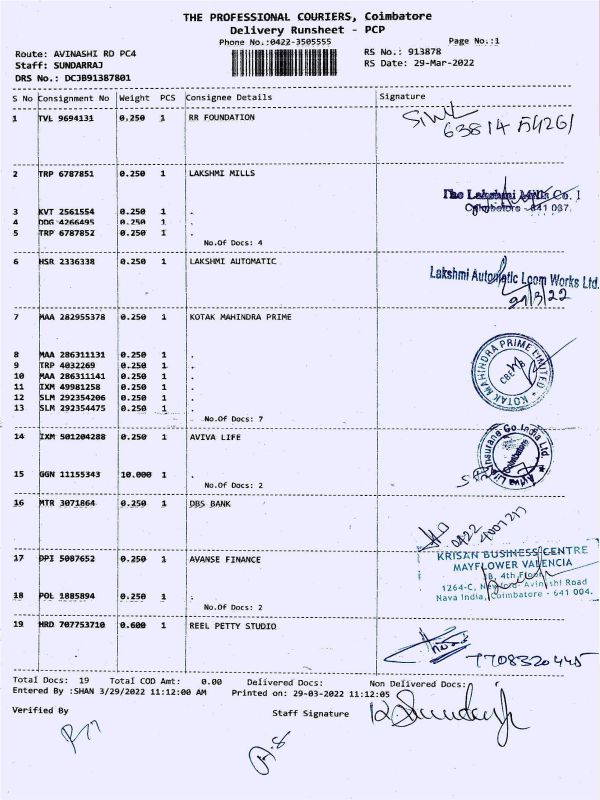 THE PROFESSIONAL COURIERS, Coimbatore
Delivery Runsheet - PCP
Phone No.:0422-3505555
Page No.:1
Route: AVINASHI RD PC4
RS No.: 913878
Staff: SUNDARRAJ
RS Date: 29-Mar-2022
DRS No.: DCJB91387801
S No Consignment No Weight PCS Consignee Details Signature
1 TVL 9694131 0.250 1 RR FOUNDATION
63814 54261
2 TRP 6787851 0.250 1 LAKSHMI MILLS
The Lakshmi Mills Co. l
Coimbatore - 641 037.
3 KVT 2561554 0.250 1 .
4 DDG 4266495 0.250 1 .
5 TRP 6787852 0.250 1 .
No.Of Docs: 4
6 HSR 2336338 0.250 1 LAKSHMI AUTOMATIC
Lakshmi Automatic Loom Works Ltd.
29/3/22
7 MAA 282955378 0.250 1 KOTAK MAHINDRA PRIME
KOTAK MAHINDRA PRIME LIMITED
CBE
8 MAA 286311131 0.250 1 .
9 TRP 4032269 0.250 1 .
10 MAA 286311141 0.250 1 .
11 IXM 49981258 0.250 1 .
12 SLM 292354206 0.250 1 .
13 SLM 292354475 0.250 1 .
No.Of Docs: 7
14 IXM 501204288 0.250 1 AVIVA LIFE
Aviva Life Insurance Co India Ltd.
Coimbatore
15 GGN 11155343 10.000 1 .
No.Of Docs: 2
16 MTR 3071864 0.250 1 DBS BANK
0422
4007217
17 DPI 5087652 0.250 1 AVANSE FINANCE
KRISAN BUSINESS CENTRE
MAYFLOWER VALENCIA
4th Floor
1264-C, Avinashi Road
Nava India, Coimbatore - 641 004.
18 POL 1885894 0.250 1 .
No.Of Docs: 2
19 HRD 707753710 0.600 1 REEL PETTY STUDIO
7708320445
Total Docs: 19 Total COD Amt: 0.00 Delivered Docs: Non Delivered Docs:
Entered By :SHAN 3/29/2022 11:12:00 AM Printed on: 29-03-2022 11:12:05
Verified By
Staff Signature